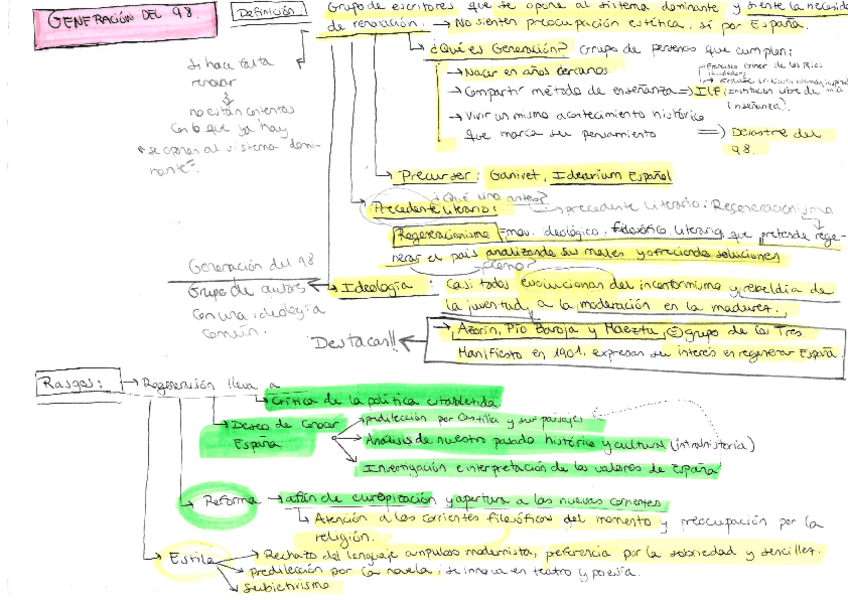 GENERACIÓN DEL 98.
Definición.
Grupo de escritores que se opone al sistema dominante y siente la necesida
de renovación. → No sienten preocupación estética, sí por España.
Si hace falta
renovar
no están contentos
con lo que ya hay
se oponen al sistema domi-
nante
¿Qué es Generación? Grupo de personas que cumplen:
→ Nacer en años cercanos
→ Compartir método de enseñanza ⇒ ILE: Institución Libre de
Enseñanza).
→ Vivir un mismo acontecimiento histórico
que marca su pensamiento ⇒ Desastre del
98.
→ Precursor: Ganivet, Idearium Español
Precedente literario:
→ precedente literario: Regeneracionismo
Regeneracionismo = mov. ideológico, filosófico, literario, que pretende rege-
nerar el país analizando sus males y ofreciendo soluciones
¿Cómo?
Generación del 98
Grupo de autores
con una ideología
común.
Ideología: Casi todos evolucionan del inconformismo y rebeldía de
la juventud, a la moderación en la madurez.
Destacan!!
→ Azorín, Pío Baroja y Maeztu, = grupo de los Tres.
Manifiesto en 1901, expresan su interés en regenerar España.
Rasgos: → Regeneración lleva a
→ Crítica de la política establecida
→ Deseo de conocer
España
predilección por Castilla y sus paisajes
Análisis de nuestro pasado histórico y cultural (intrahistoria)
Investigación e interpretación de los valores de España
Reforma → afán de europización y apertura a las nuevas corrientes
↳ Atención a las corrientes filosóficas del momento y preocupación por la
religión.
Estilo → Rechazo del lenguaje ampuloso modernista, preferencia por la sobriedad y sencillez.
→ predilección por la novela, se innova en teatro y poesía.
→ Subjetivismo